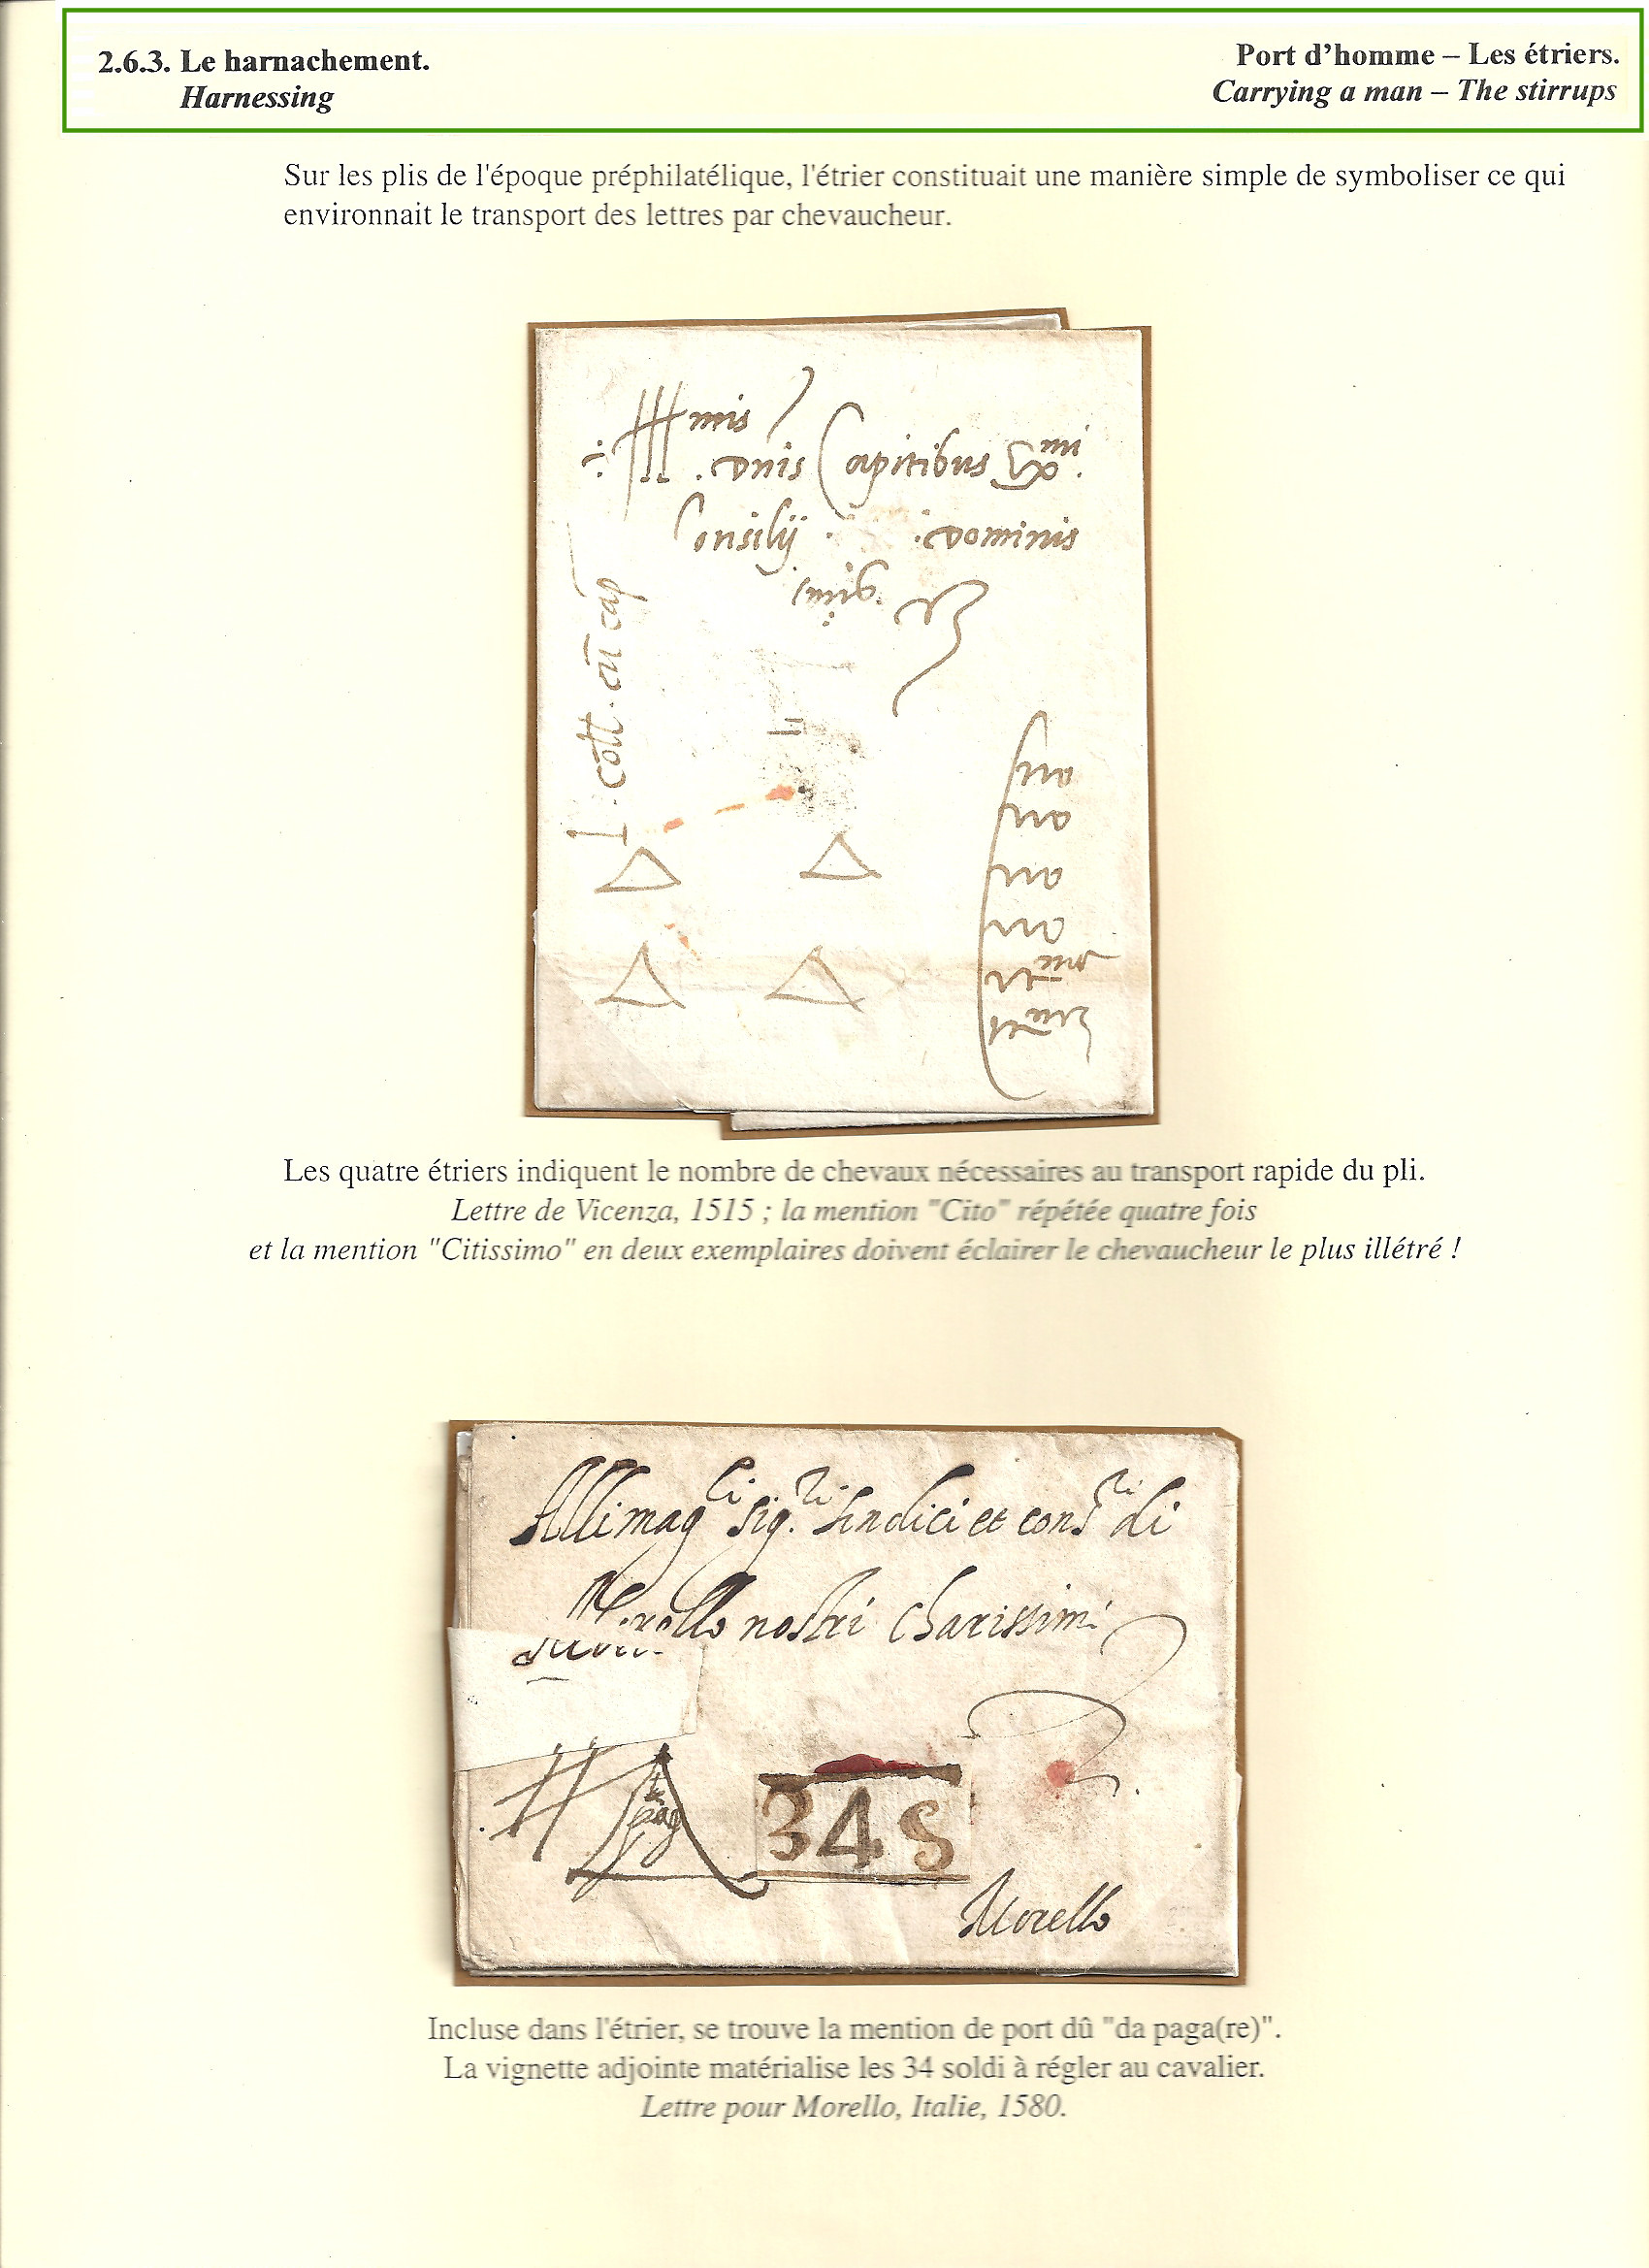 2.6.3. Le harnachement.
Harnessing
Port d'homme – Les étriers.
Carrying a man – The stirrups
Sur les plis de l'époque préphilatélique, l'étrier constituait une manière simple de symboliser ce qui
environnait le transport des lettres par chevaucheur.
mis
Capitibus
Consilij dominis
Les quatre étriers indiquent le nombre de chevaux nécessaires au transport rapide du pli.
Lettre de Vicenza, 1515 ; la mention "Cito" répétée quatre fois
et la mention "Citissimo" en deux exemplaires doivent éclairer le chevaucheur le plus illétré !
Alli mag.ci Sig.ri Sindici et cons.ri di
Morello nostri Charissimi
pag
34 S
Morello
Incluse dans l'étrier, se trouve la mention de port dû "da paga(re)".
La vignette adjointe matérialise les 34 soldi à régler au cavalier.
Lettre pour Morello, Italie, 1580.